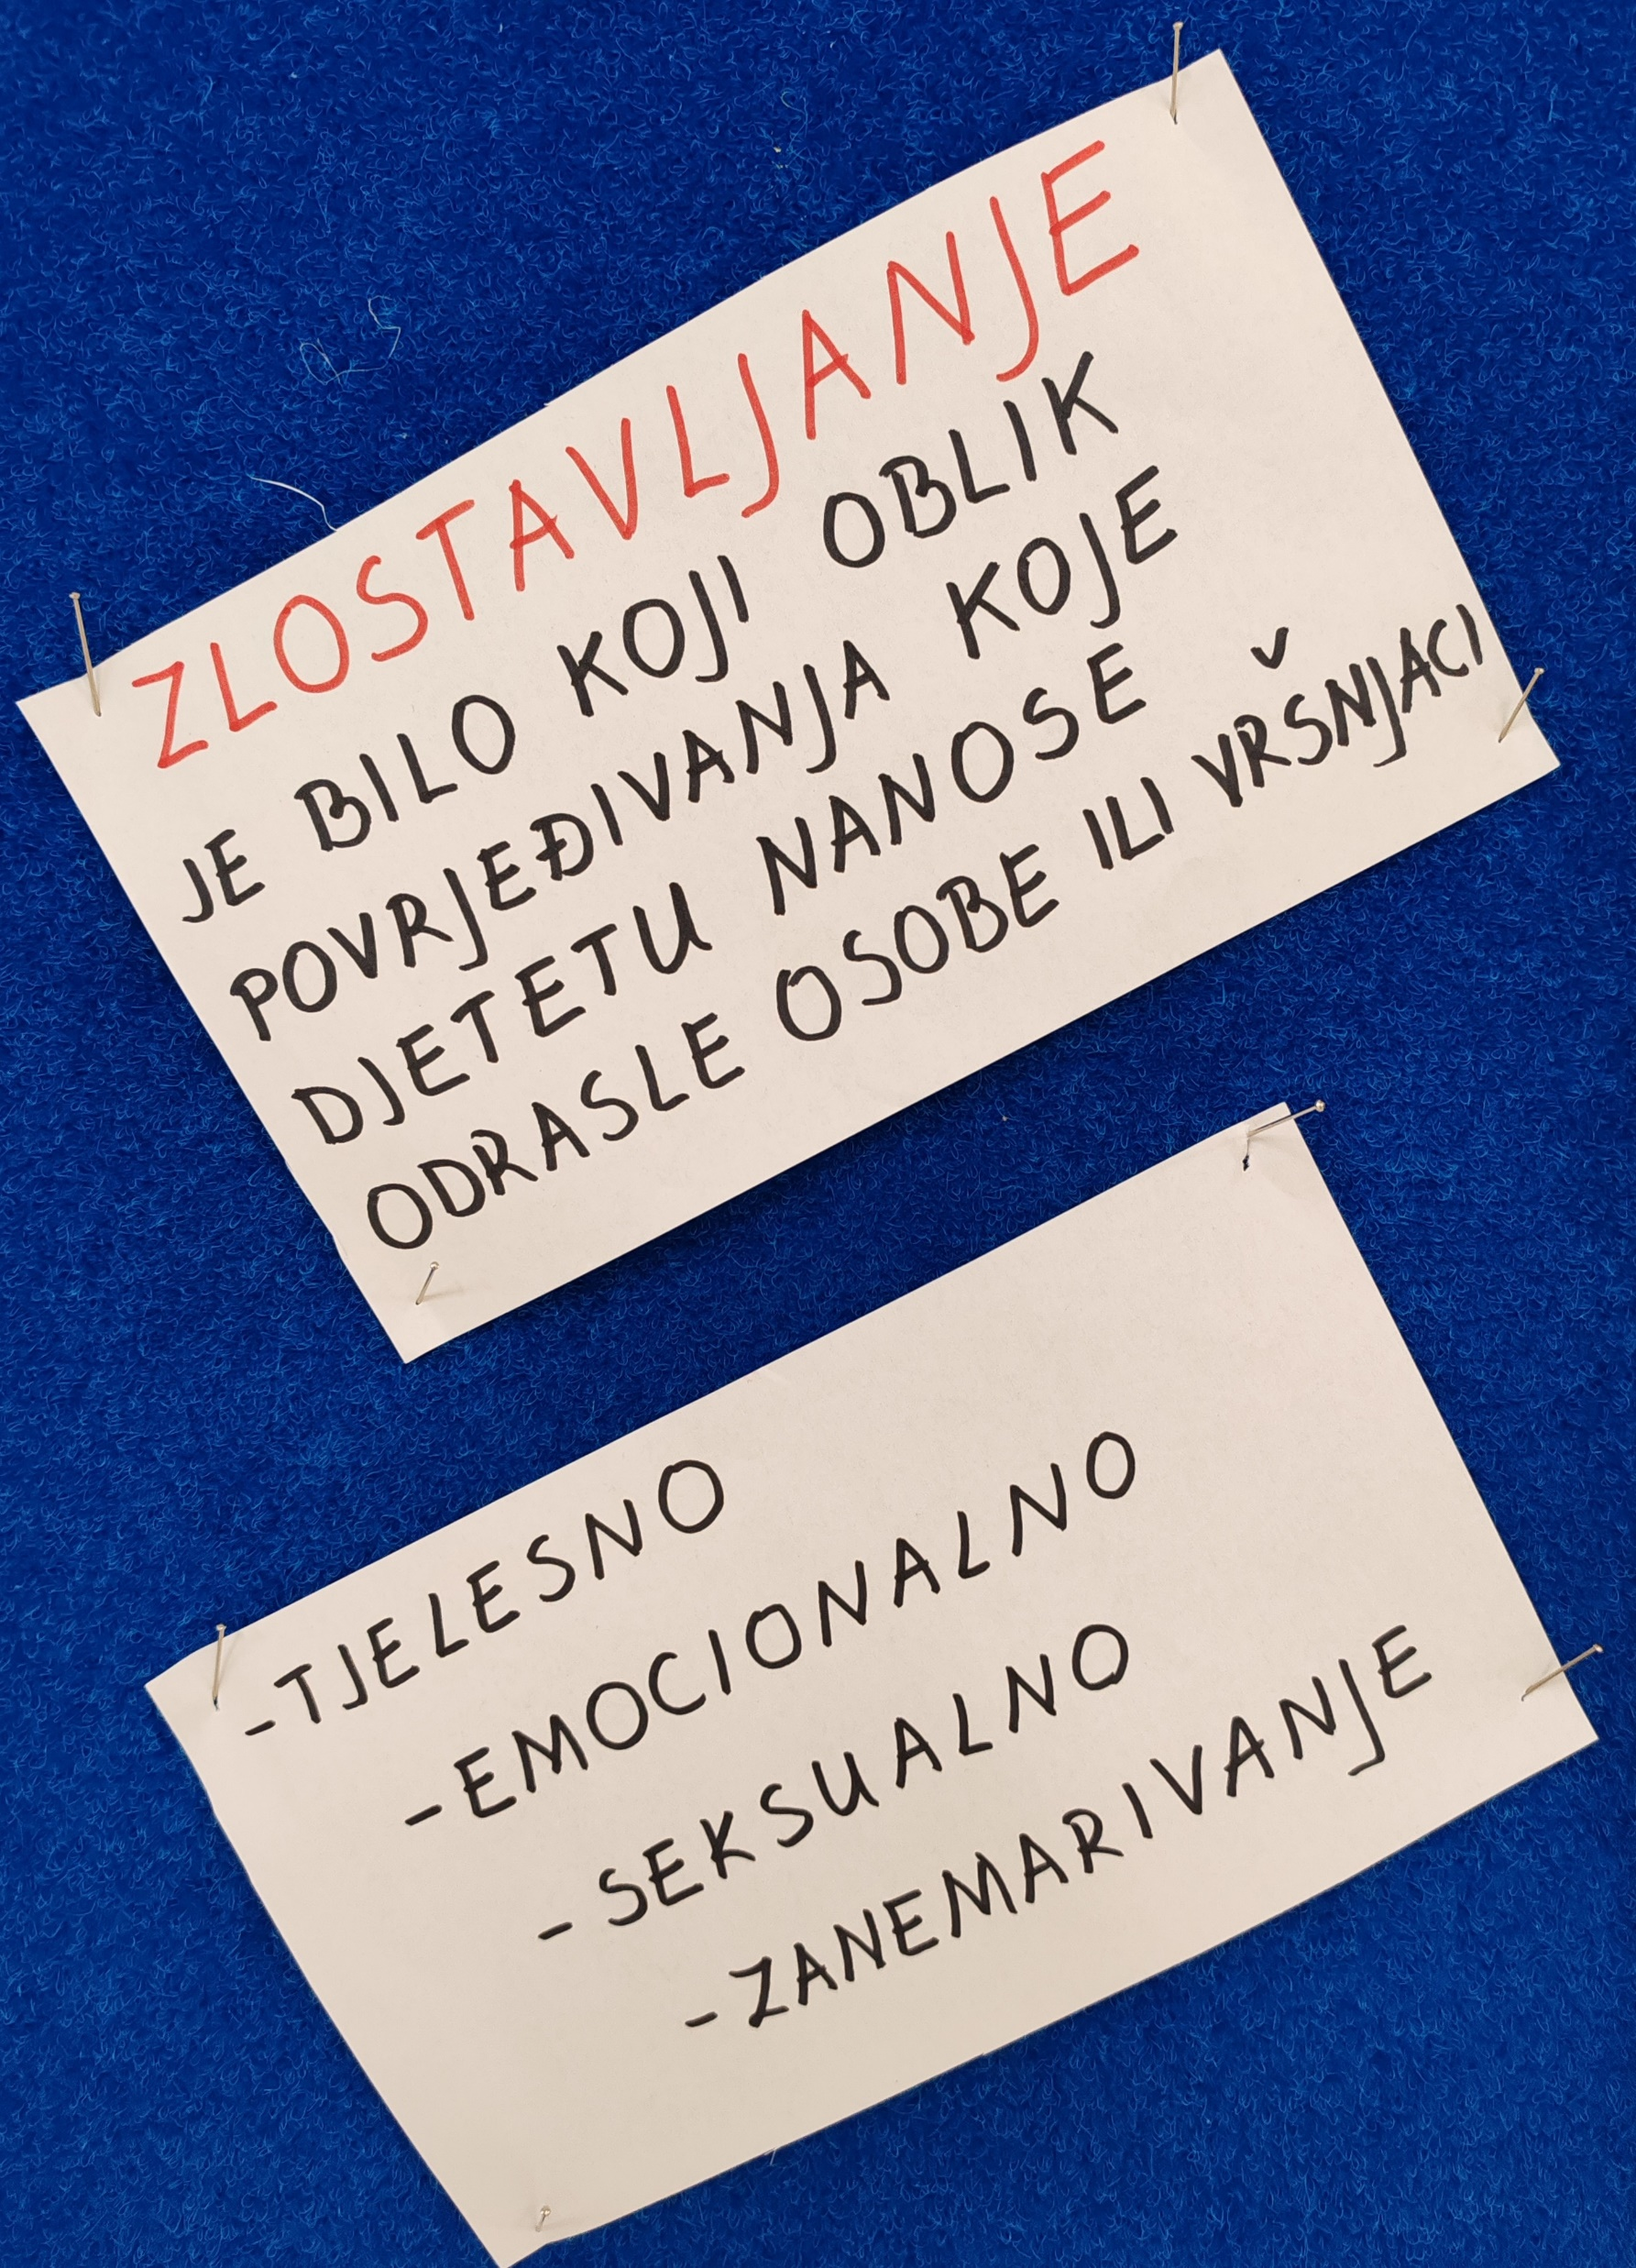 ZLOSTAVLJANJE
JE BILO KOJI OBLIK
POVRJEĐIVANJA KOJE
DJETETU NANOSE
ODRASLE OSOBE ILI VRŠNJACI
-TJELESNO
-EMOCIONALNO
-SEKSUALNO
-ZANEMARIVANJE